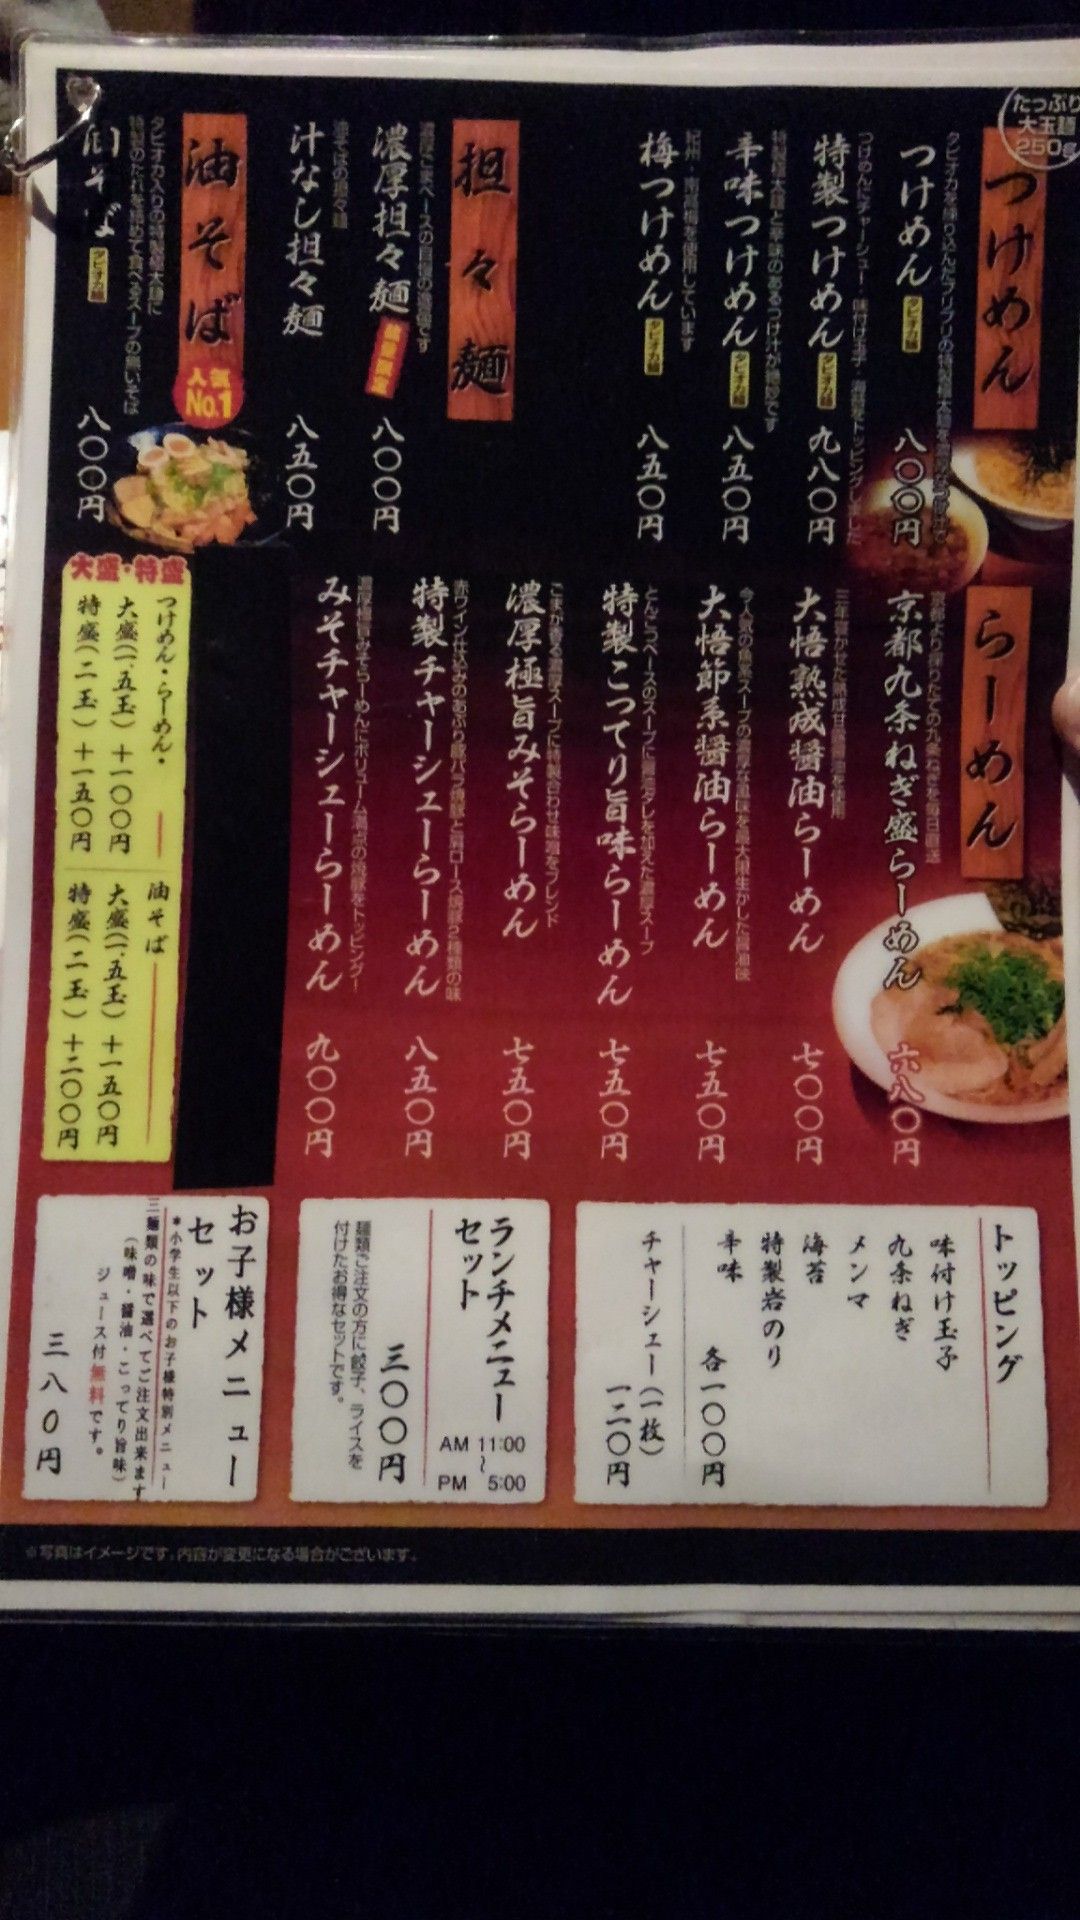 たっぷり
大玉麺
250g
つけめん
つけめん タピオカ麺 八〇〇円
特製つけめん タピオカ麺 九八〇円
特製極太麺と辛味のあるつけ汁が絶妙です
辛味つけめん タピオカ麺 八五〇円
紀州・南高梅を使用しています
梅つけめん タピオカ麺 八五〇円
担々麺
濃厚ごまベースの自慢の逸品です
濃厚担々麺 八〇〇円
油そばの担々麺
汁なし担々麺 八五〇円
油そば
人気
No.1
タピオカ入りの特製極太麺に
特製のたれを絡めて食べるスープの無いそば
油そば タピオカ麺 八〇〇円
らーめん
京都より採りたての九条ねぎを毎日直送
京都九条ねぎ盛らーめん 六八〇円
三年寝かせた熟成甘露醤油を使用
大悟熟成醤油らーめん 七〇〇円
大悟節系醤油らーめん 七五〇円
特製こってり旨味らーめん 七五〇円
ごまが香る濃厚スープに特製合わせ味噌をブレンド
濃厚極旨みそらーめん 七五〇円
赤ワイン仕込みのあぶり豚バラ焼豚と肩ロース焼豚2種類の味
特製チャーシューらーめん 八五〇円
濃厚極旨みそらーめんにボリューム満点の焼豚をトッピング!
みそチャーシューらーめん 九〇〇円
大盛・特盛
つけめん・らーめん・
大盛(一、五玉) 十一〇〇円
特盛(二玉) 十一五〇円
油そば
大盛(一、五玉) 十一五〇円
特盛(二玉) 十二〇〇円
トッピング
味付け玉子
九条ねぎ
メンマ
海苔
特製岩のり
辛味
各一〇〇円
チャーシュー(一枚)
一二〇円
ランチメニュー
セット
AM 11:00
〜
PM 5:00
三〇〇円
麺類ご注文の方に餃子、ライスを
付けたお得なセットです。
お子様メニュー
セット
*小学生以下のお子様特別メニュー
三麺類の味で選べてご注文出来ます
(味噌・醤油・こってり旨味)
ジュース付無料です。
三八〇円
※写真はイメージです。内容が変更になる場合がございます。